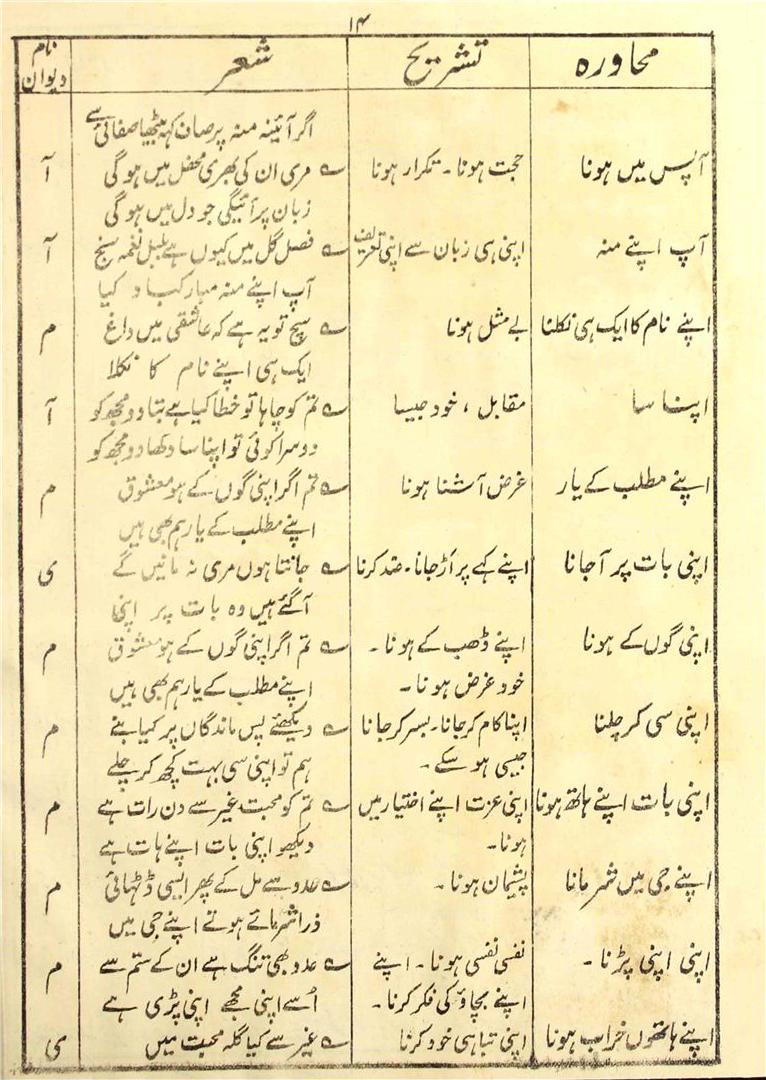 ۱۴
محاورہ تشریح شعر نام دیوان
اگر آئینہ منہ پر صاف کہہ بیٹھا صفائی سے
آپس میں ہونا حجت ہونا۔ تکرار ہونا ؎ مری ان کی بھری محفل میں ہوگی آ
زبان پر آئیگی جو دل میں ہوگی
آپ اپنے منہ اپنی ہی زبان سے اپنی تعریف ؎ فصل گل میں کیوں ہے بلبل نغمہ سنج آ
آپ اپنے منہ مبارکباد کیا
اپنے نام کا ایک ہی نکلنا بے مثل ہونا ؎ سچ تو یہ ہے کہ عاشقی میں داغ م
ایک ہی اپنے نام کا نکلا
اپنا سا مقابل، خود جیسا ؎ تم کو چاہا تو خطا کیا ہے بتا دو مجھ کو آ
دوسرا کوئی تو اپنا سا دکھا دو مجھ کو
اپنے مطلب کے یار غرض آشنا ہونا ؎ تم اگر اپنی گوں کے ہو معشوق م
اپنے مطلب کے یار ہم بھی ہیں
اپنی بات پر آجانا اپنے کہے پر اَڑ جانا۔ ضد کرنا ؎ جانتا ہوں مری نہ مانیں گے ی
آگئے ہیں وہ بات پر اپنی
اپنی گوں کے ہونا اپنے ڈھب کے ہونا۔ ؎ تم اگر اپنی گوں کے ہو معشوق م
خود غرض ہونا۔ اپنے مطلب کے یار ہم بھی ہیں
اپنی سی کر چلنا اپنا کام کر جانا۔ بسر کر جانا ؎ دیکھئے پس ماندگاں پر کیا بنے م
جیسی ہو سکے۔ ہم تو اپنی سی بہت کچھ کر چلے
اپنی بات اپنے ہاتھ ہونا اپنی عزت اپنے اختیار میں ؎ تم کو محبت غیر سے دن رات ہے م
ہونا۔ دیکھو اپنی بات اپنے ہات ہے
اپنے جی میں شرمانا پشیمان ہونا۔ ؎ عدو سے مل کے پھر ایسی ڈھٹائی م
ذرا شرمائے ہوتے اپنے جی میں
اپنی اپنی پڑنا۔ نفسی نفسی ہونا۔ اپنے ؎ عدو بھی تنگ ہے ان کے ستم سے م
اپنے بچاؤ کی فکر کرنا۔ اُسے اپنی مجھے اپنی پڑی ہے
اپنے ہاتھوں خراب ہونا اپنی تباہی خود کرنا ؎ غیر سے کیا گلہ محبت میں ی